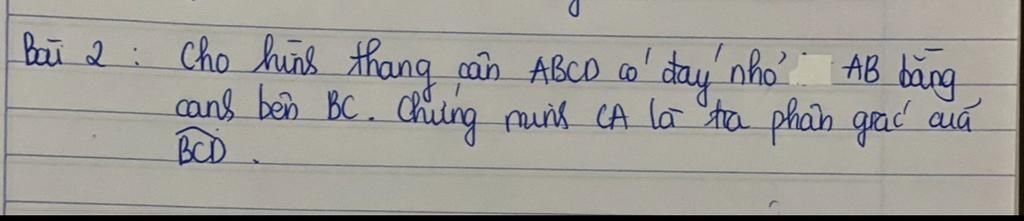 Bài 2 : Cho hình thang cân ABCD có đáy nhỏ AB bằng
cạnh bên BC. Chứng minh CA là tia phân giác của
BCD.